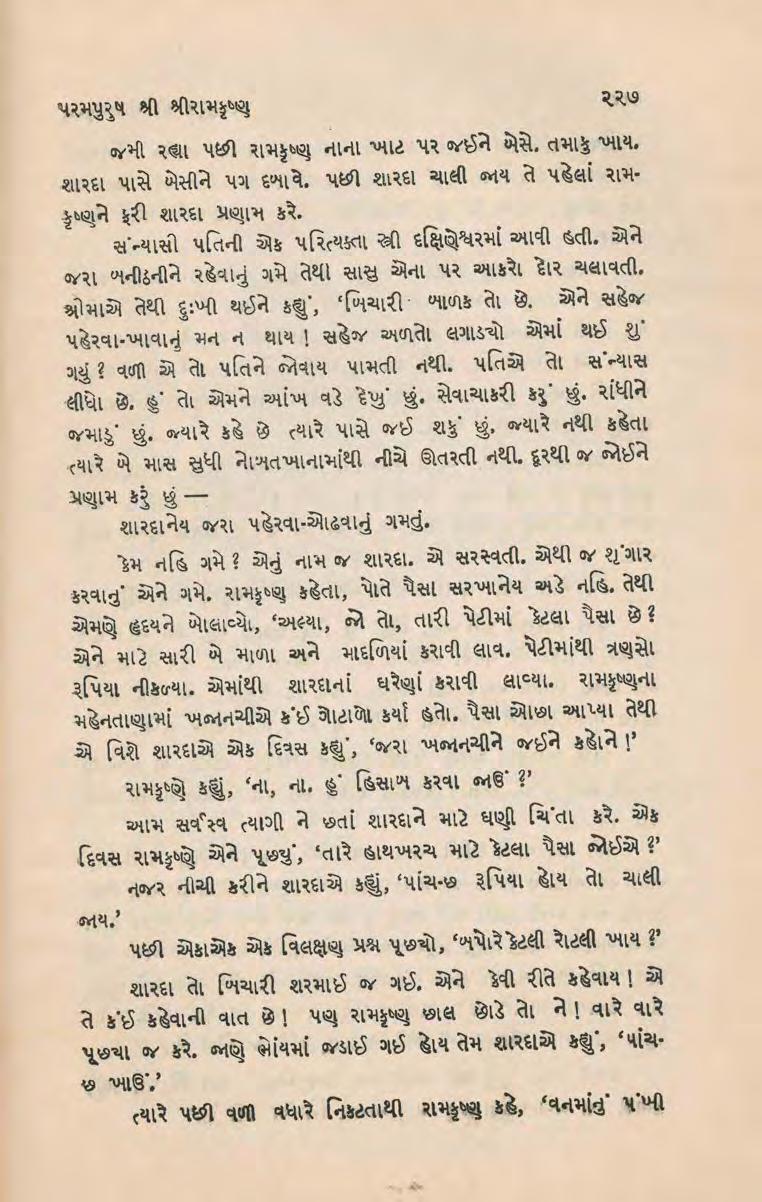 પરમપુરુષ શ્રી શ્રીરામકૃષ્ણ ૨૨૭
જમી રહ્યા પછી રામકૃષ્ણ નાના ખાટ પર જઈને બેસે. તમાકુ ખાય.
શારદા પાસે બેસીને પગ દબાવે. પછી શારદા ચાલી જાય તે પહેલાં રામ-
કૃષ્ણને ફરી શારદા પ્રણામ કરે.
સંન્યાસી પતિની એક પરિત્યક્તા સ્ત્રી દક્ષિણેશ્વરમાં આવી હતી. એને
જરા બનીઠનીને રહેવાનું ગમે તેથી સાસુ એના પર આકરો દોર ચલાવતી.
શ્રીમાએ તેથી દુઃખી થઈને કહ્યું, ‘બિચારી બાળક તો છે. એને સહેજ
પહેરવા-ખાવાનું મન ન થાય ! સહેજ અળતો લગાડચો એમાં થઈ શું
ગયું ? વળી એ તો પતિને જોવાય પામતી નથી. પતિએ તો સંન્યાસ
લીધો છે. હું તો એમને આંખ વડે દેખું છું. સેવાચાકરી કરું છું. રાંધીને
જમાડું છું. જ્યારે કહે છે ત્યારે પાસે જઈ શકું છું. જ્યારે નથી કહેતા
ત્યારે બે માસ સુધી નોબતખાનામાંથી નીચે ઊતરતી નથી. દૂરથી જ જોઈને
પ્રણામ કરું છું —
શારદાનેય જરા પહેરવા-ઓઢવાનું ગમતું.
કેમ નહિ ગમે ? એનું નામ જ શારદા. એ સરસ્વતી. એથી જ શૃંગાર
કરવાનું એને ગમે. રામકૃષ્ણ કહેતા, પોતે પૈસા સરખાનેય અડે નહિ. તેથી
એમણે હૃદયને બોલાવ્યો, ‘અલ્યા, જો તો, તારી પેટીમાં કેટલા પૈસા છે ?
એને માટે સારી બે માળા અને માદળિયાં કરાવી લાવ. પેટીમાંથી ત્રણસો
રૂપિયા નીકળ્યા. એમાંથી શારદાનાં ઘરેણાં કરાવી લાવ્યા. રામકૃષ્ણના
મહેનતાણામાં ખજાનચીએ કંઈ ગોટાળો કર્યા હતો. પૈસા ઓછા આપ્યા તેથી
એ વિશે શારદાએ એક દિવસ કહ્યું, ‘જરા ખજાનચીને જઈને કહોને !’
રામકૃષ્ણે કહ્યું, ‘ના, ના. હું હિસાબ કરવા જાઉં ?’
આમ સર્વસ્વ ત્યાગી ને છતાં શારદાને માટે ઘણી ચિંતા કરે. એક
દિવસ રામકૃષ્ણે એને પૂછ્યું, ‘તારે હાથખરચ માટે કેટલા પૈસા જોઈએ ?’
નજર નીચી કરીને શારદાએ કહ્યું, ‘પાંચ-છ રૂપિયા હોય તો ચાલી
જાય.’
પછી એકાએક એક વિલક્ષણ પ્રશ્ન પૂછચો, ‘બપોરે કેટલી રોટલી ખાય ?’
શારદા તો બિચારી શરમાઈ જ ગઈ. એને કેવી રીતે કહેવાય ! એ
તે કંઈ કહેવાની વાત છે ! પણ રામકૃષ્ણ છાલ છોડે તો ને ! વારે વારે
પૂછચા જ કરે. જાણે ભોંયમાં જડાઈ ગઈ હોય તેમ શારદાએ કહ્યું, ‘પાંચ-
છ ખાઉં.’
ત્યારે પછી વળી વધારે નિકટતાથી રામકૃષ્ણ કહે, ‘વનમાંનું પંખી